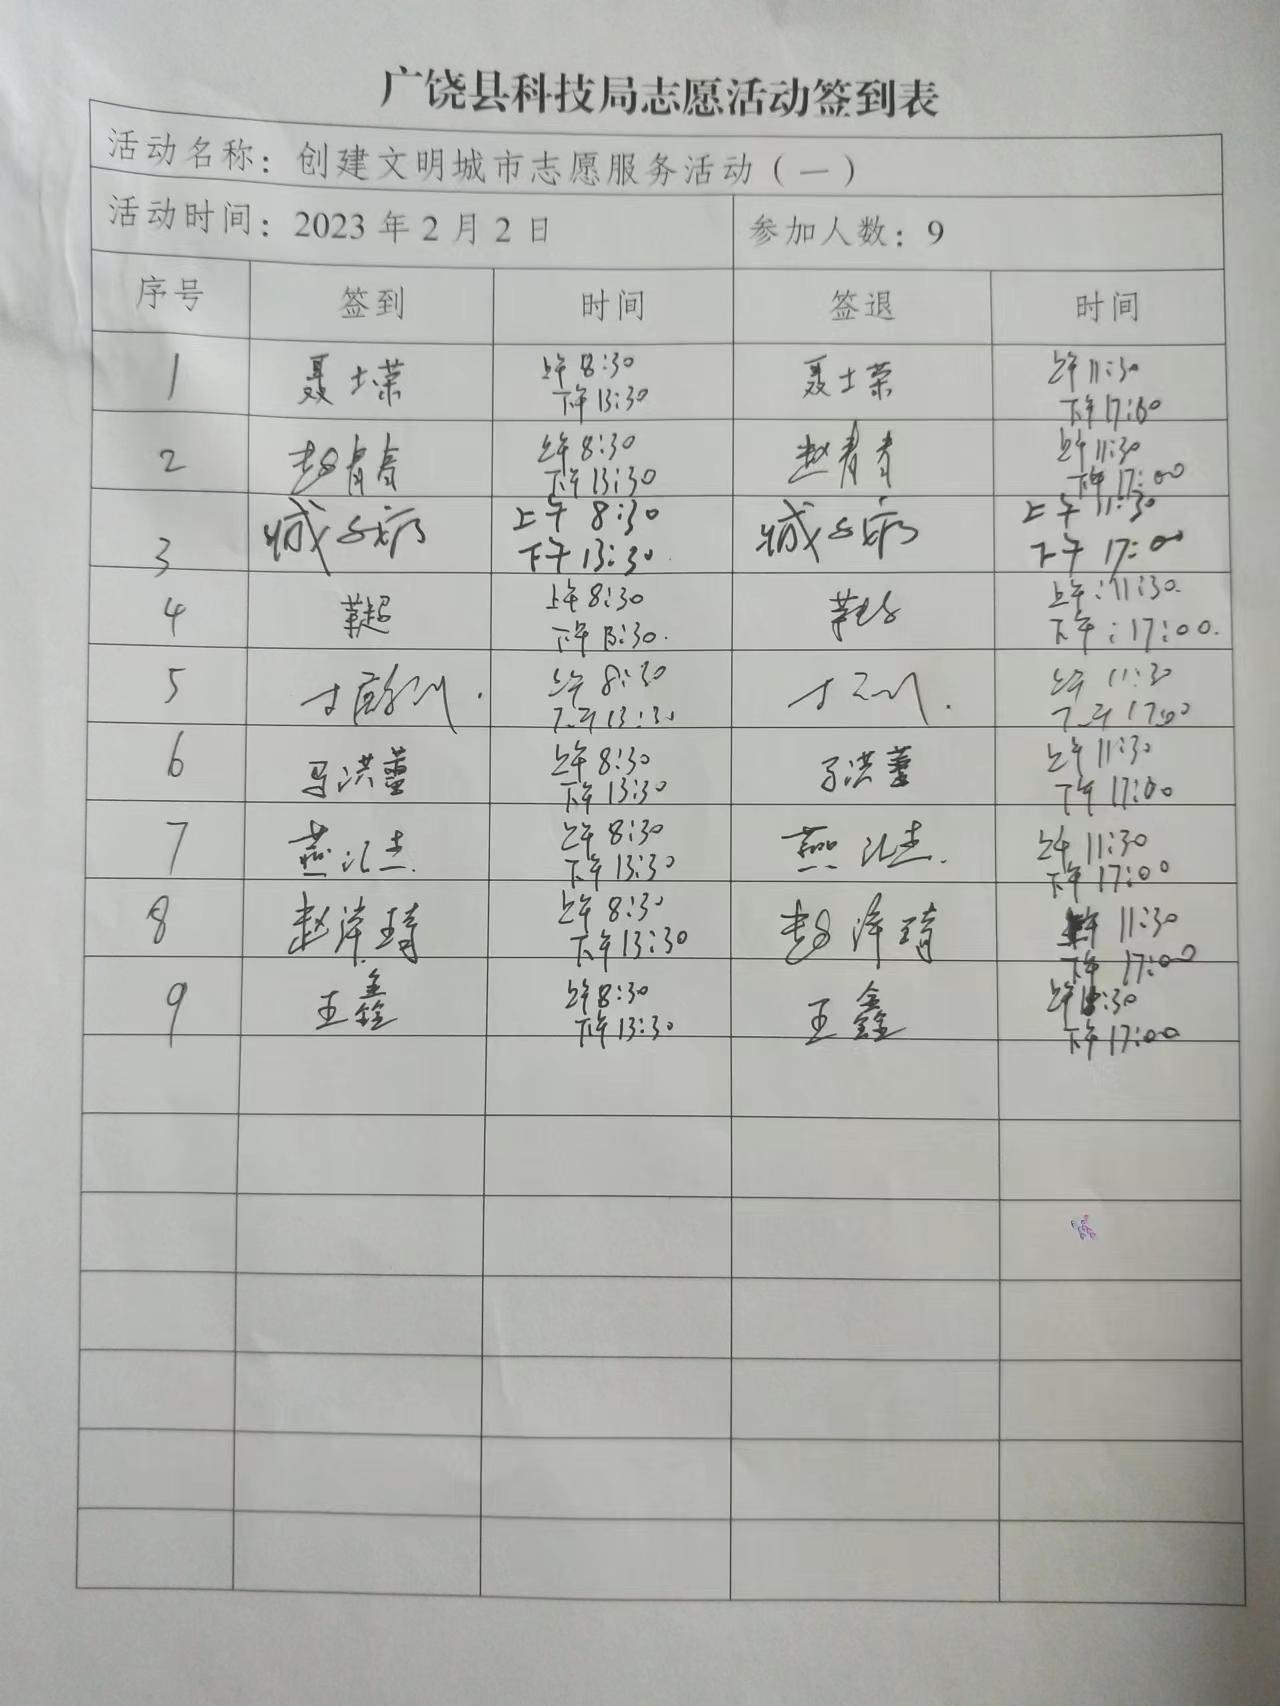 广饶县科技局志愿活动签到表
活动名称：创建文明城市志愿服务活动（一）
活动时间：2023年2月2日 参加人数：9
序号 签到 时间 签退 时间
1 聂士荣 上午8:30 聂士荣 上午11:30
下午13:30 下午17:00
2 赵青青 上午8:30 赵青青 上午11:30
下午13:30 下午17:00
3 上午8:30 上午11:30
下午13:30 下午17:00
4 上午8:30 上午:11:30.
下午13:30. 下午:17:00.
5 上午8:30 上午11:30
下午13:30 下午17:00
6 马洪蕾 上午8:30 马洪蕾 上午11:30
下午13:30 下午17:00
7 燕汇杰. 上午8:30 燕汇杰. 上午11:30
下午13:30 下午17:00
8 赵泽琦 上午8:30 赵泽琦 上午11:30
下午13:30 下午17:00
9 王鑫 上午8:30 王鑫 上午
下午13:30 下午17:00